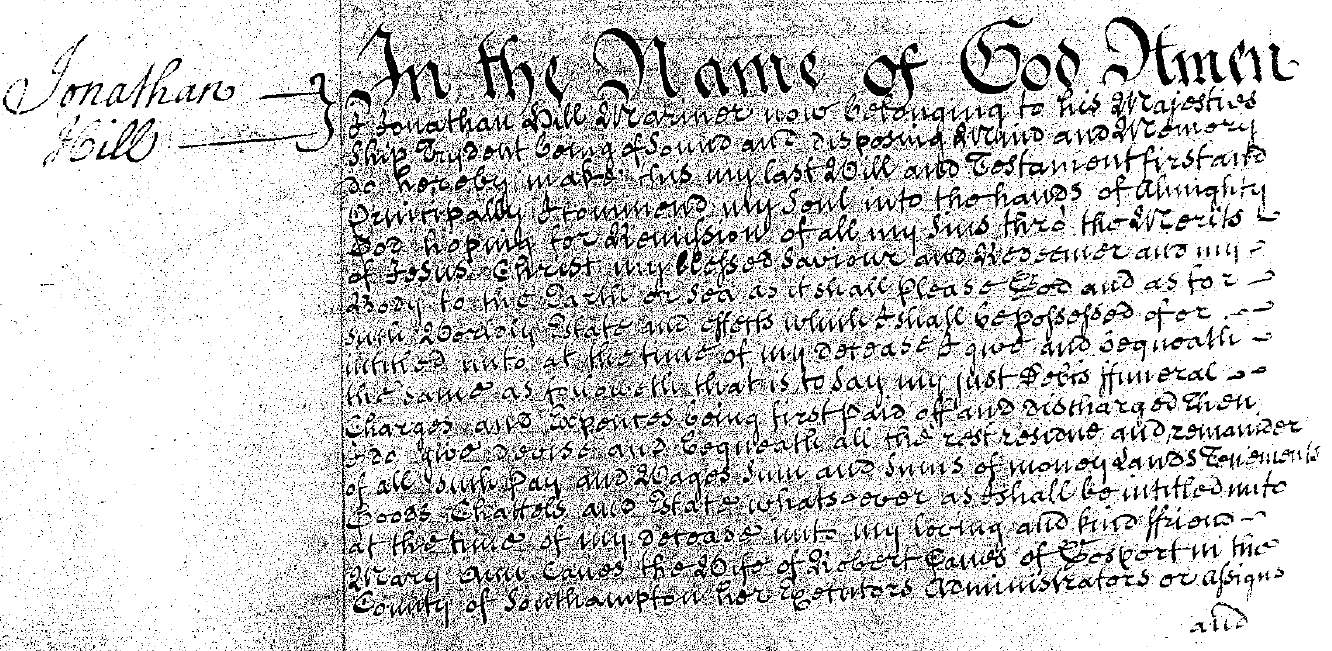 Jonathan
Hill
In the Name of God Amen
I Jonathan Hill Mariner now belonging to his Majesties
Ship Trydent being of Sound and disposing Mind and Memory
do hereby make this my last Will and Testament first and
Principally I commend my Soul into the hands of Almighty
God hoping for Remission of all my Sins thro' the Merits
of Jesus Christ my blessed Saviour and Redeemer and my
Body to the Earth or Sea as it shall please God and as for
such Worldly Estate and effects which I shall be possessed of or
intitled unto at the time of my decease I give and bequeath
the same as followeth that is to say my just Debts ffuneral
Charges and Expences being first paid off and discharged then
I do give devise and bequeath all the rest residue and remainder
of all such Pay and Wages Sum and Sums of money Lands Tenements
Goods Chattels and Estate whatsoever as I shall be intitled unto
at the time of my decease unto my loving and kind ffriend
Mary Ann Eaves the Wife of Robert Eaves of Gosport in the
County of Southampton her Executors Administrators or Assigns
and